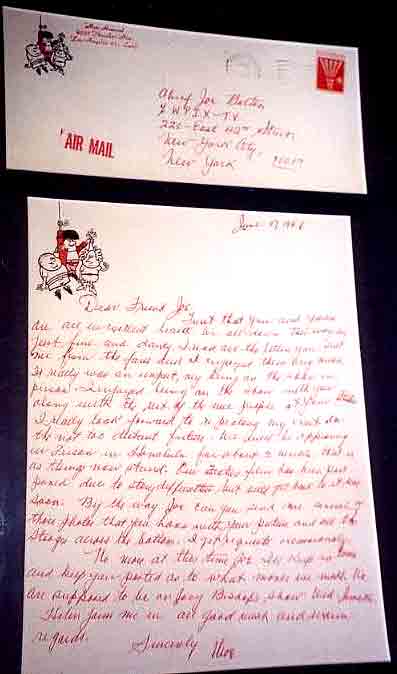 Moe Howard
Los Angeles
Chief Joe Bolton
% W P I X - T. V.
220 - East 42nd Street
New York City,
New York 10017
AIR MAIL
June 17, 196
Dear Friend Joe,
Trust that you and yours
are all in excellent health
just fine and dandy. I read all the letters you sent
me from the fans and I enjoyed them very much.
It really was an impact, my being on the show in
person. I enjoyed being on the show with you
along with the rest of the nice people at your
I really look forward to repeating my visit in
the not too distant future. We will be appearing
in person in Honolulu for about 2 weeks, that is
as things now stand. Our feature film has been post
poned due to story difficulties, but will get back to it very
soon. By the way Joe can you send me several of
those photos that you have with your picture and all the
Stooges across the bottom. I get requests occasionally.
No more at this time Joe. I'll keep in touch
and keep you posted as to what moves we make. We
are supposed to be on Joey Bishop's show Wed June
Helen joins me in all good wishes and warm
regards.
Sincerely Moe